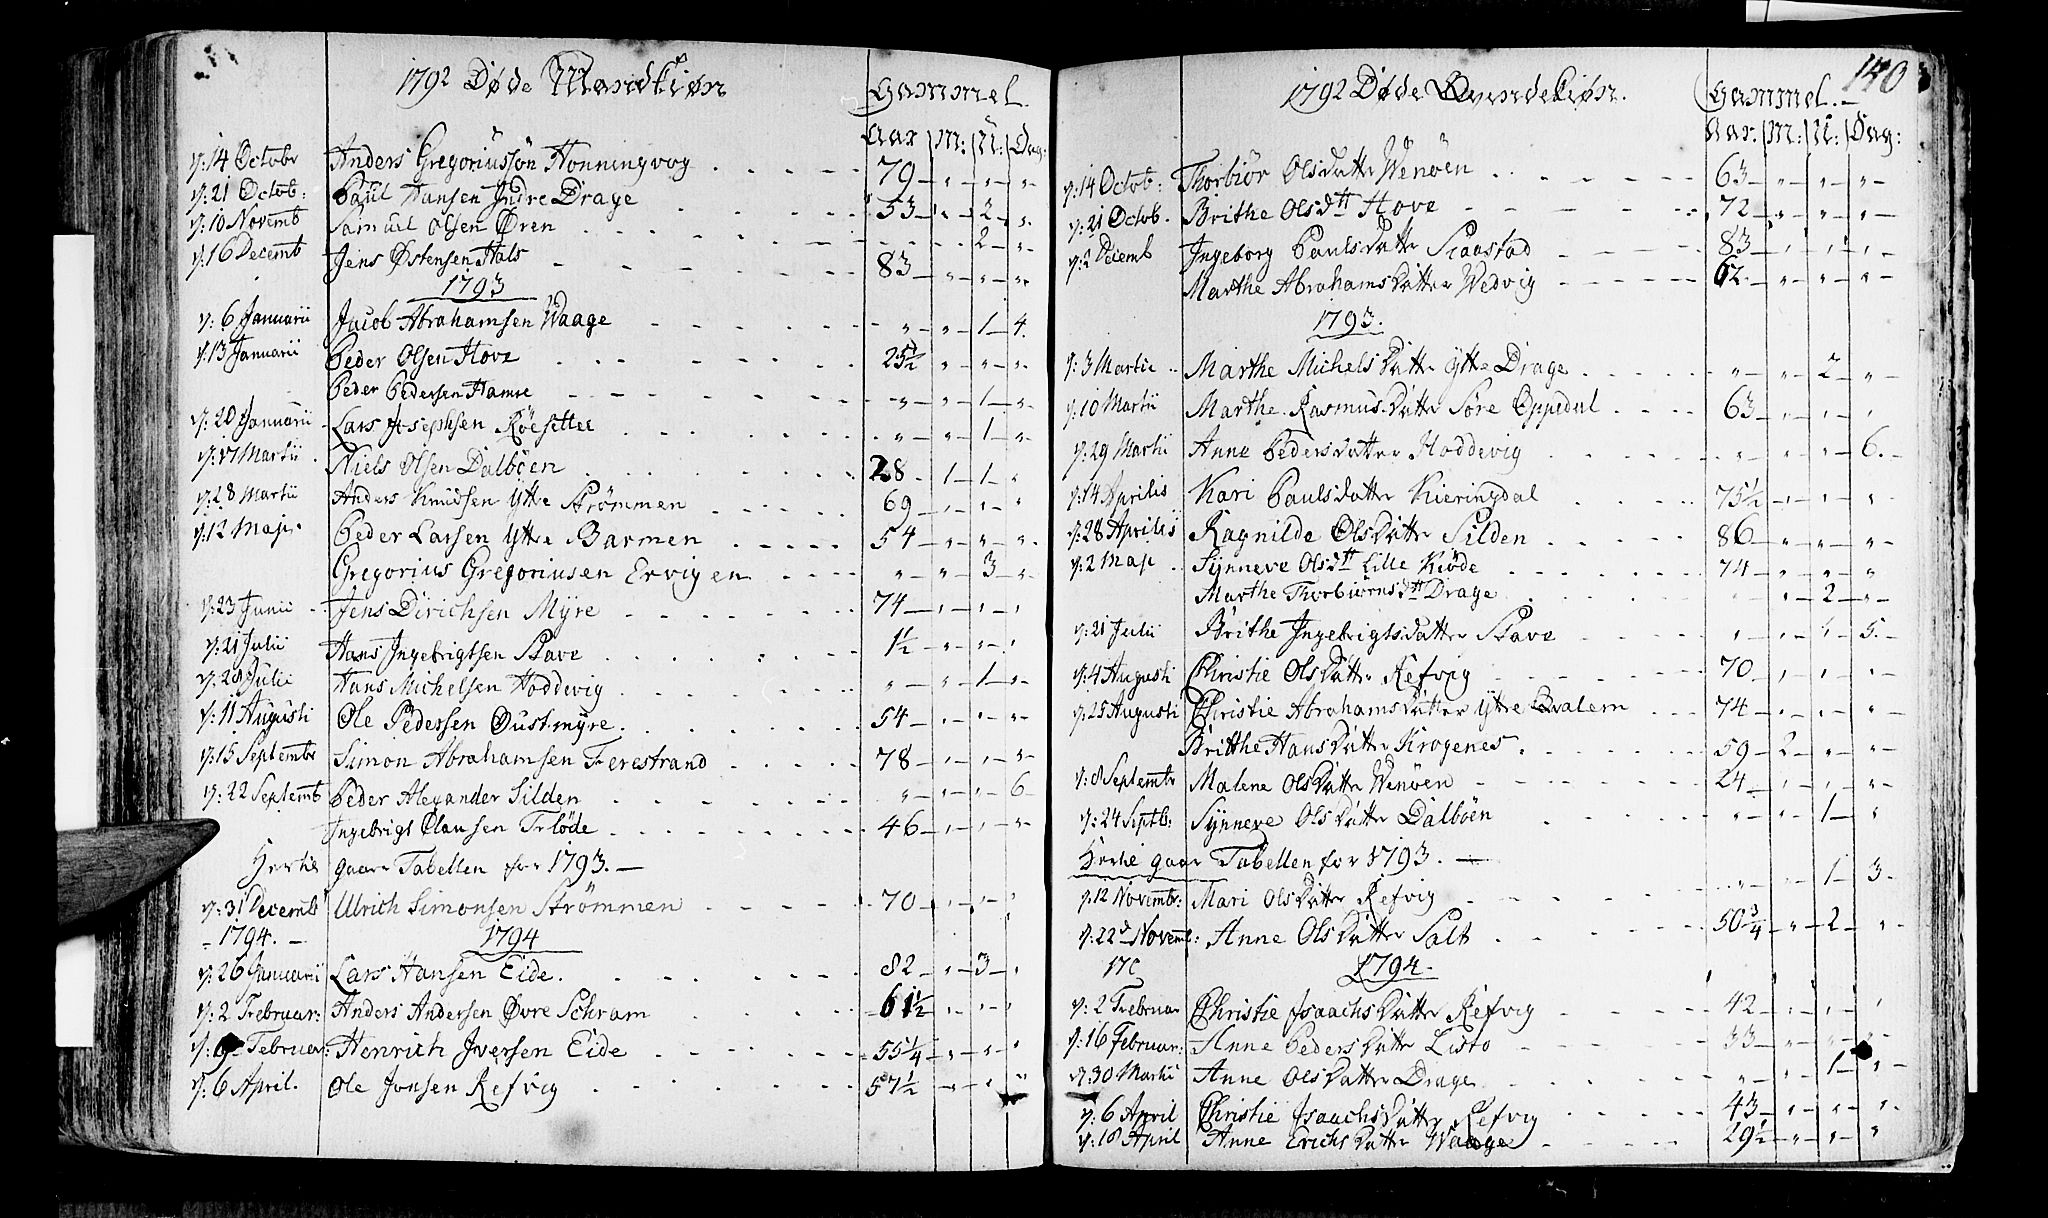 1792 Døde Mandkiøn
Gammel.
Aar M: U: Dag:
d: 14 Octobr Anders Gregoriussön Honningvog 79 " " "
d: 21 Octob: Paul Hansen Indre Drage 53 " 2 "
d: 10 Novemb Samuel Olsen Øren 2 "
d: 16 Decemb Jens Østensen Hals 83 " " "
1793
d: 6 Januarii Jacob Abrahamsen Waage " " 1 4
d: 13 Januarii Peder Olsen Hove 25½ " " "
Peder Pedersen Hamre " " 1 "
d: 20 Januarii Lars Josephsen Röesettee " " 1 "
d: 17 Martii Niels Olsen Dalböen 28 1 1 "
d: 28 Martii Anders Knudsen Ytte Strömmen 69 " " "
d: 12 Maji Peder Larsen Yttre Barmen 54 " " "
Gregorius Gregoriusen Ervigen " " 3 "
d: 23 Junii Jens Dirichsen Myre 74 " " "
d: 21 Julii Hans Ingebrigtsen Stave 1½ " " "
d: 28 Julii Hans Michelsen Hoddevig " " 1 "
d: 11 Augusti Ole Pedersen Dustmyre 54 " " "
d: 15 Septembr Simon Abrahamsen Ferestrand 78 " " "
d: 22 Septemb Peder Alexander Silden " " " 6
Ingebrigt Clausen Frlöde 46 " " "
Hertil gaar Tabellen for 1793.
d: 31 Decemb Ulrich Simonsen Strömmen 70 " " "
1794. 1794
d: 26 Januarii Lars Hansen Eide 82 " 3 "
d: 2 Februar: Anders Andersen Øvre Schram 61½ " " "
d: 9 Februar: Henrich Iversen Eide 55¼ " " "
d: 6 April. Ole Jonsen Refvig 57½ " " "
140
1792 Døde Qvindekiøn.
Gammel.
Aar. M: U: Dag:
d: 14 Octob: Thorbiör Olsdatter Wenöen 63 " " "
d: 21 Octob. Brithe Olsdtt Hove 72 " " "
d: 2 Decemb Ingeborg Paulsdatter Staastad 83 " " "
Marthe Abrahamsdatter Wedvig 62 " " "
1793.
d: 3 Martii Marthe Michelsdatter Ytte Drage " " 2 "
d: 10 Martii Marthe Rasmusdatter Söre Oppedal 63 " " "
d: 29 Martii Anne Pedersdatter Hoddevig " " " 6.
d: 14 Aprilis Kari Paulsdatter Kieringdal 75½ " " "
d: 28 Aprilis Ragnilde Olsdatter Silden 86 " " "
d: 2 Maji Synneve Olsdtt Lille Kiöde 74 " " "
Marthe Thorbiörnsdtt Drage " " 2 "
d: 21 Julii Brithe Ingebrigtsdatter Stave " " " 5.
d: 4 Augusti Christie Olsdatter Refvig 70 " " "
d: 25 Augusti Christie Abrahamsdatter Yttre Qvalem 74 " " "
Britthe Hansdatter Krogenes 59 2 " "
d: 8 Septembr Malene Olsdatter Wenöen 24 " " "
d: 24 Septb: Synneve Olsdatter Dalböen " " 1 "
Hertil gaar Tabellen for 1793.
d: 12 Novembr: Mari Olsdatter Refvig " " 1 3
d: 22d Novemb: Anne Olsdatter Salt 50¾ " 2 "
1794.
d: 2 Februar Christie Isaachsdatter Refvig 42 " " "
d: 16 Februar: Anne Pedersdatter Listo 33 " " "
d: 30 Martii Anne Olsdatter Drage " " 1 "
d: 6 April Christie Isaachsdatter Refvig 43 " " "
d: 18 April Anne Erichsdatter Waage 29½ " " "